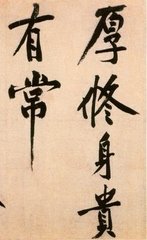 厚修身貴
有常